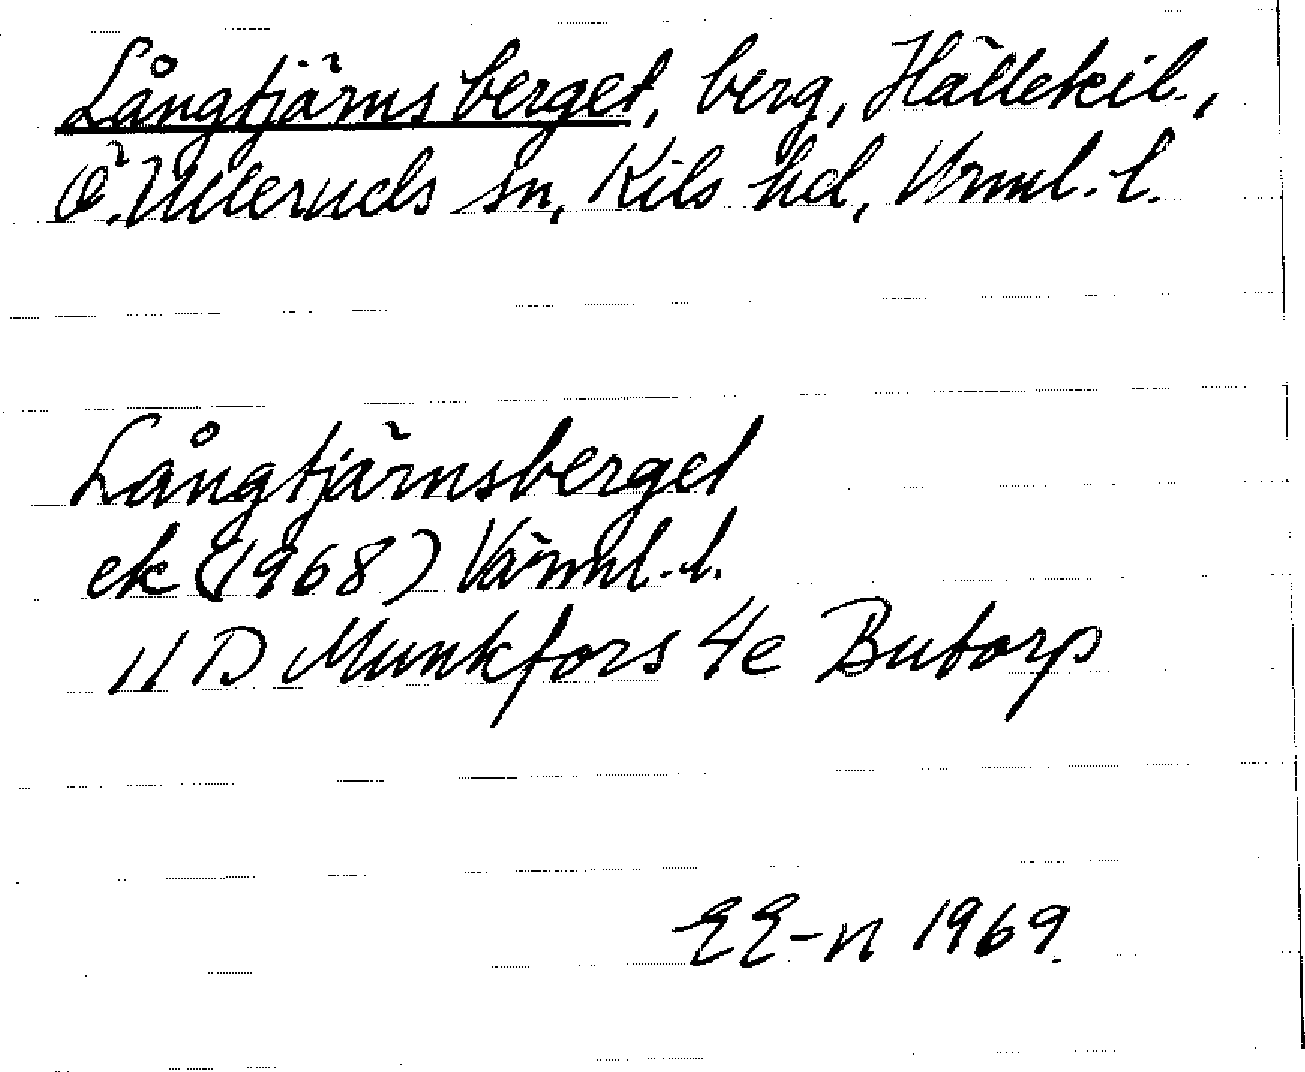 Långtjärnsberget, berg, Hällekil,
Ö. Ulleruds sn, Kils hd, Vrml. l.
Långtjärnsberget
ek (1968) Värml. l.
11 D Munkfors 4e Butorp
EE-n 1969.